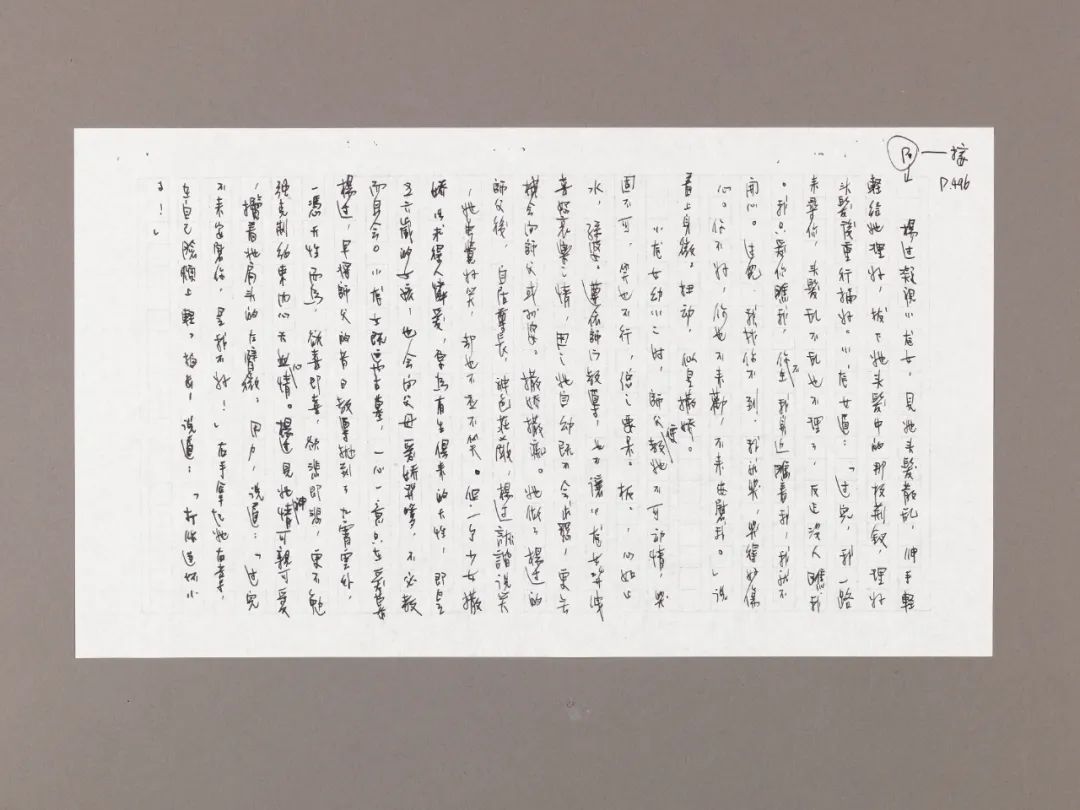 接
P.496
楊過凝視小龍女,見她頭髮散亂,伸手輕
輕給她理好,拔下她頭髮中的那枝荊釵,理好
頭髮後重行插好。小龍女道:「過兒,我一路
來尋你,頭髮亂不亂也不理了,反正沒人瞧我
。我只愛你瞧我,你不在我身邊瞧着我,我就不
開心。過兒,我找你不到,我就哭,哭得好傷
心。你不好,你也不來勸,不來安慰我。」說
着上身微微扭動,似是撒嬌。
小龍女幼小之時,師父便教她不可動情,哭
固不可,笑也不行,總之要呆呆板板,心如止
水,孫婆婆遵依師門教導,也不讓小龍女發洩
喜怒哀樂之情,因之她自幼既不會求懇,更無
機會向師父或孫婆婆撒嬌撒痴。她做了楊過的
師父後,自居尊長,神色莊嚴,楊過詼諧說笑
,她雖覺好笑,卻也不不笑。但一個少女撒
嬌以求得人憐愛,實為有生俱來的天性,即是
歲的女孩,也會向父母愛嬌,不必教
而自會。小龍女既離古墓,一心一意只在愛慕
楊過,早將師父的昔日教導拋到了九霄雲外,
一憑天性而為,欲喜即喜,欲悲即悲,更不勉
強克制約束內心情。楊過見她神情可親可愛
,攬着她肩頭的左臂微微用力,說道:「過兒
不來安慰你,是我不好!」右手拿起她右手,
在自己臉頰上輕輕拍打,說道:「打你這壞小
子!」